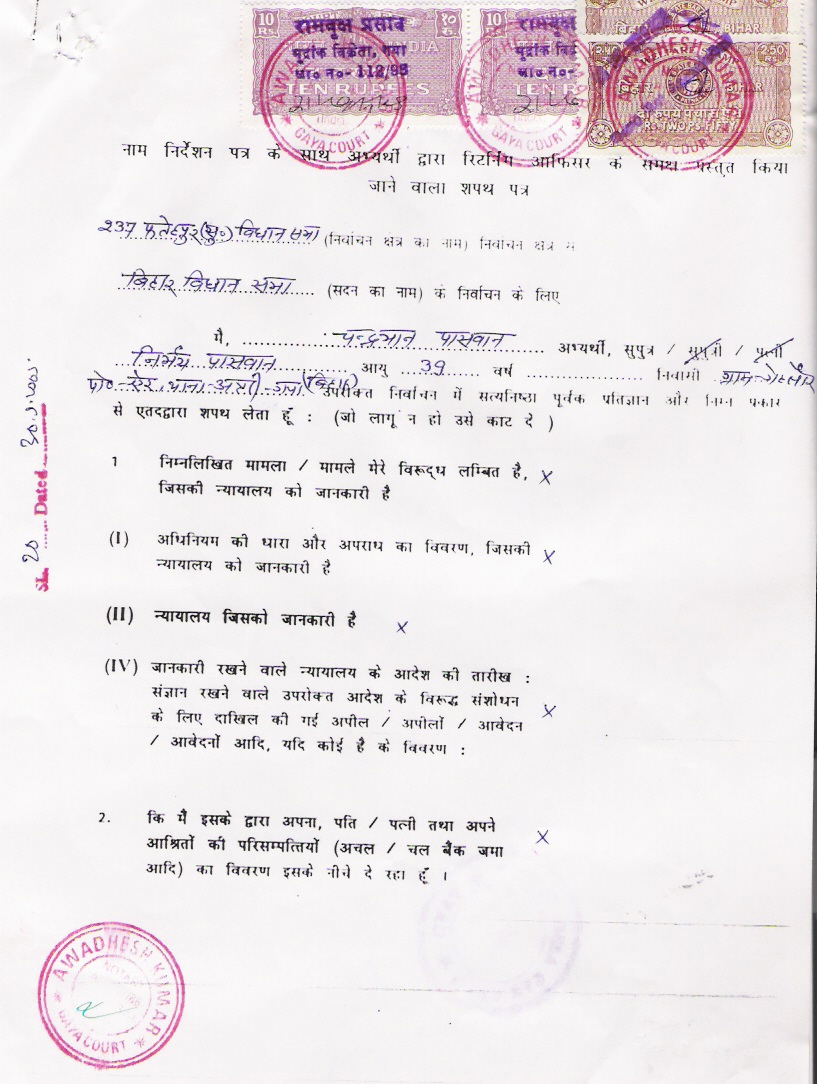 10 Rs.
१० रु.
रामवृक्ष प्रसाद
मुद्रांक विक्रेता, गया
INDIA
ला० न०- 112/85
TEN RUPEES
10 Rs.
रामवृक्ष
मुद्रांक
ला० न०-
TEN R
BIHAR
2.50
BIHAR
दो रुपये पचास पैसे
RS. TWO PS. FIFTY
AWADHESH KUMAR
GAYA COURT
AWADHESH KUMAR
GAYA COURT
AWADHESH KUMAR
GAYA COURT
नाम निर्देशन पत्र के साथ अभ्यर्थी द्वारा रिटर्निंग आफिसर के समक्ष प्रस्तुत किया
जाने वाला शपथ पत्र
237 फतेहपुर (सु०) विधान सभा (निर्वाचन क्षेत्र का नाम) निर्वाचन क्षेत्र से
बिहार विधान सभा (सदन का नाम) के निर्वाचन के लिए
मै, चन्द्रभान पासवान अभ्यर्थी, सुपुत्र / सुपुत्री / पत्नी
निर्भय पासवान आयु 39 वर्ष निवासी ग्राम-
पो०- थाना- (बिहार) उपरोक्त निर्वाचन में सत्यनिष्ठा पूर्वक प्रतिज्ञान और निम्न प्रकार
से एतदद्वारा शपथ लेता हूँ : (जो लागू न हो उसे काट दे )
1 निम्नलिखित मामला / मामले मेरे विरूद्ध लम्बित है, x
जिसकी न्यायालय को जानकारी है
(I) अधिनियम की धारा और अपराध का विवरण, जिसकी x
न्यायालय को जानकारी है
(II) न्यायालय जिसको जानकारी है x
(IV) जानकारी रखने वाले न्यायालय के आदेश की तारीख :
संज्ञान रखने वाले उपरोक्त आदेश के विरूद्ध संशोधन x
के लिए दाखिल की गई अपील / अपीलों / आवेदन
/ आवेदनों आदि, यदि कोई है के विवरण :
2. कि मै इसके द्वारा अपना, पति / पत्नी तथा अपने
आश्रितों की परिसम्पत्तियों (अचल / चल बैंक जमा x
आदि) का विवरण इसके नीचे दे रहा हूँ ।
SL. 20 Dated
AWADHESH KUMAR
NOTARY
GAYA COURT